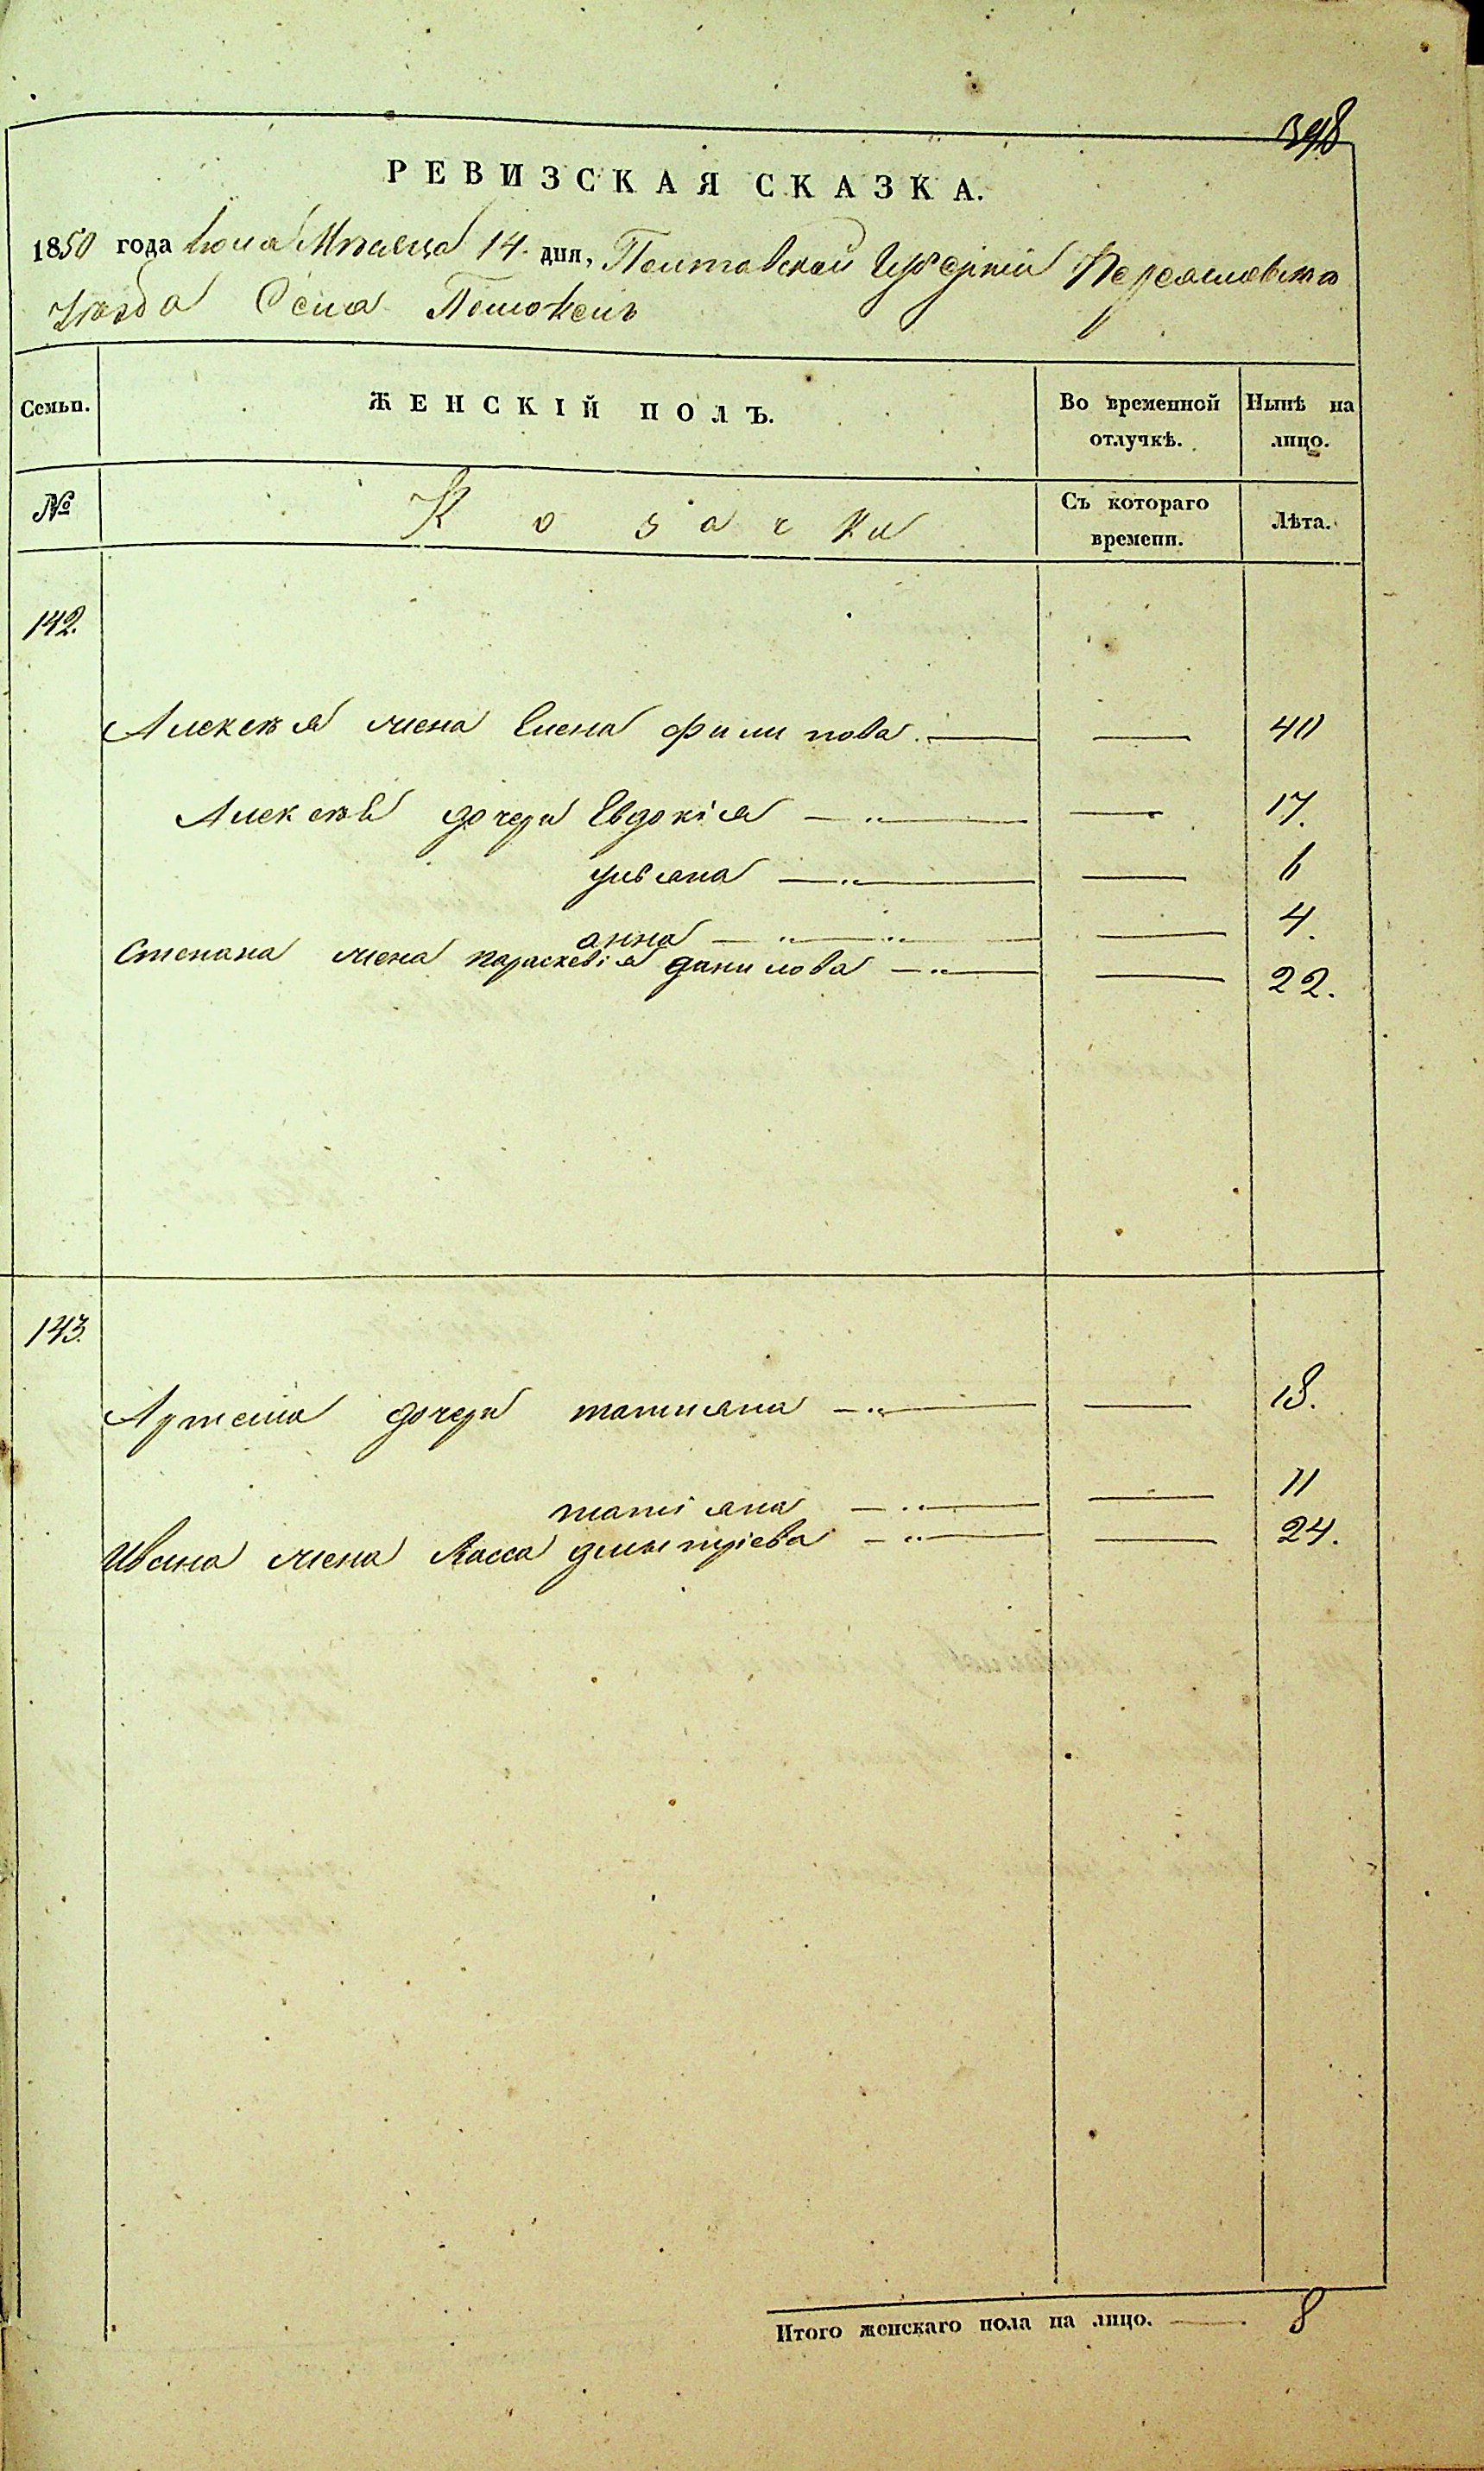 398
РЕВИЗСКАЯ СКАЗКА.
1850 года Іюля Мѣсяца 14 дня, Полтавской Губерніи Переясловскаго
Уѣзда Села Помоклей
Семьи. ЖЕНСКІЙ ПОЛЪ. Во временной отлучкѣ. Нынѣ на лицо.
№ Козачки Съ котораго времени. Лѣта.
142.
Алексѣя жена Елена Филипова 40
Алексѣя дочери Евдокія 17.
Уліана 6
анна 4.
Степана жена параскевія данилова 22.
143.
Артема дочери татиана 18.
татіана 11
Ивана жена Васса дмытріева 24.
Итого женскаго пола на лицо. 8